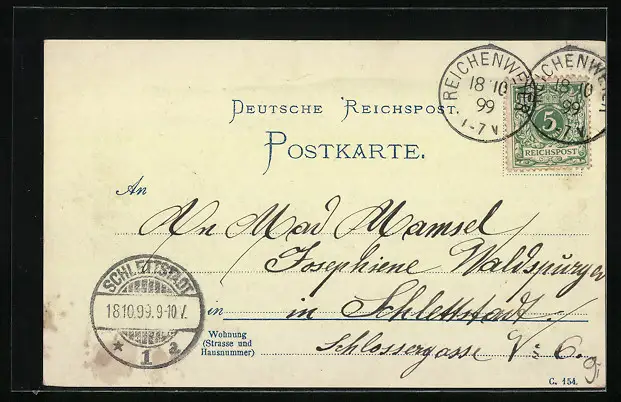 REICHENWEIER
18 10
99
1-7 N
REICHENWEIER
18 10
99
1-7 N
5
REICHSPOST
DEUTSCHE REICHSPOST.
POSTKARTE.
An
An Mad Mamsel
Josephiene Waldspurger
in in Schlettstadt
Wohnung
(Strasse und
Hausnummer)
Schlossergasse No 6.
SCHLETTSTADT
18.10.99. 9-10 V.
* 1 a
C. 154.